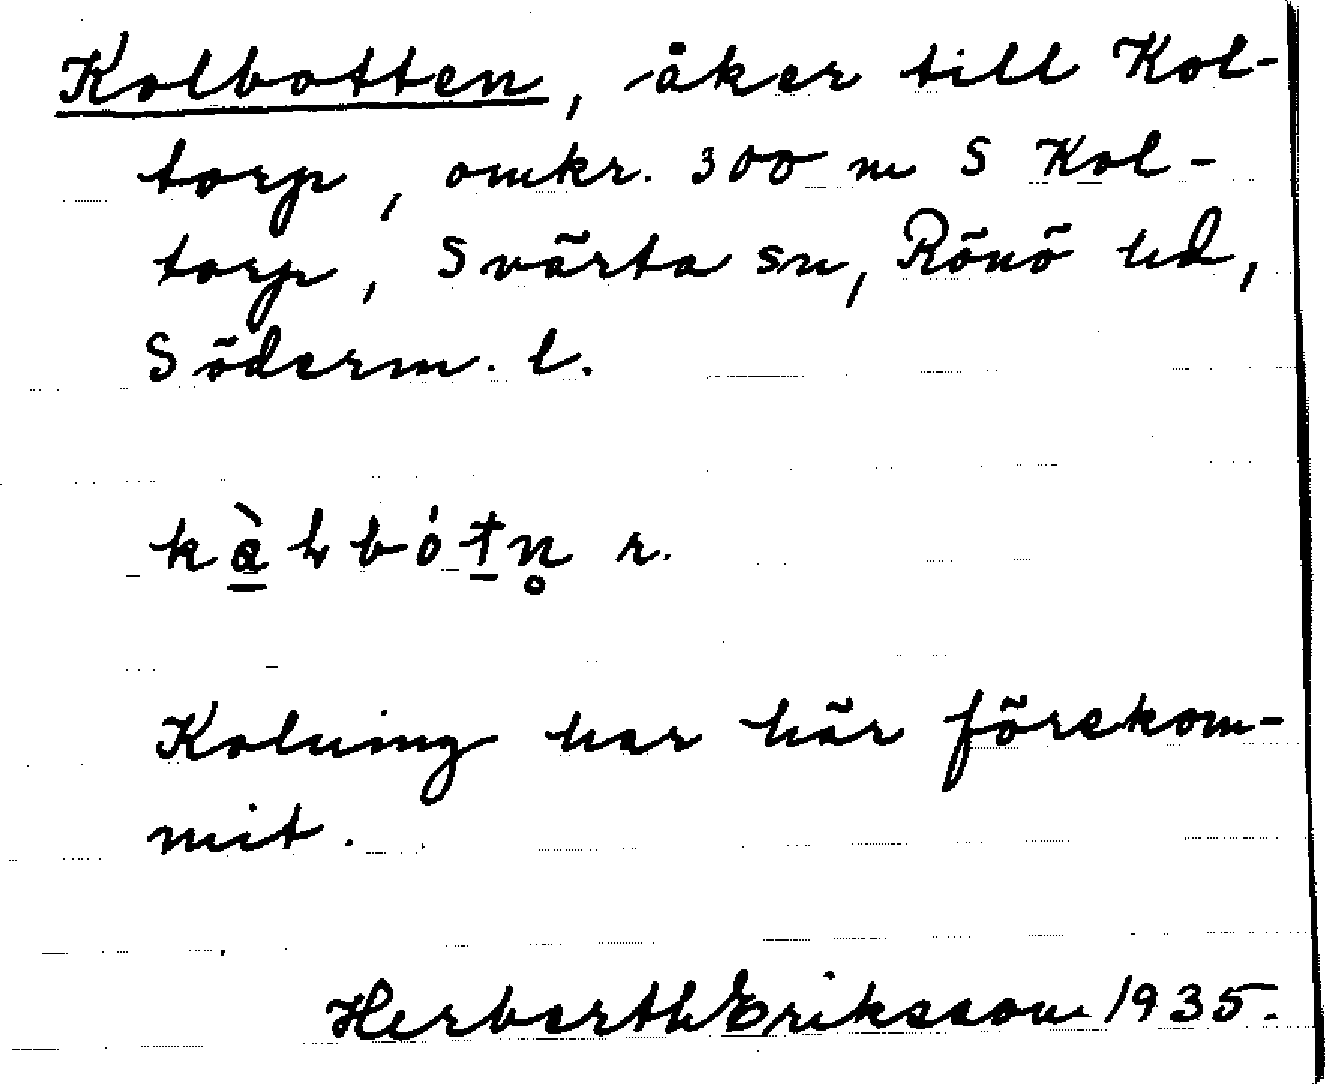 Kolbotten, åker till Kol-
torp, omkr. 300 m S Kol-
torp, Svärta sn, Rönö hd,
Söderm. l.
r.
Kolning har här förekom-
mit.
Herberth Eriksson 1935.